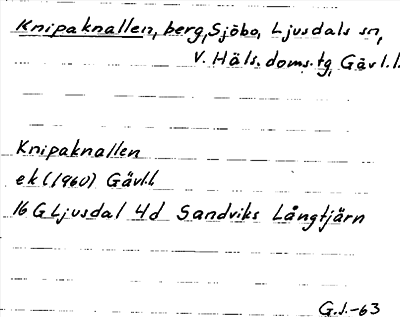 Knipaknallen, berg, Sjöbo, Ljusdals sn,
V. Häls. doms. tg, Gävl.l.
Knipaknallen
ek (1960) Gävl.l
16 G Ljusdal 4d Sandviks Långtjärn
G.J.-63